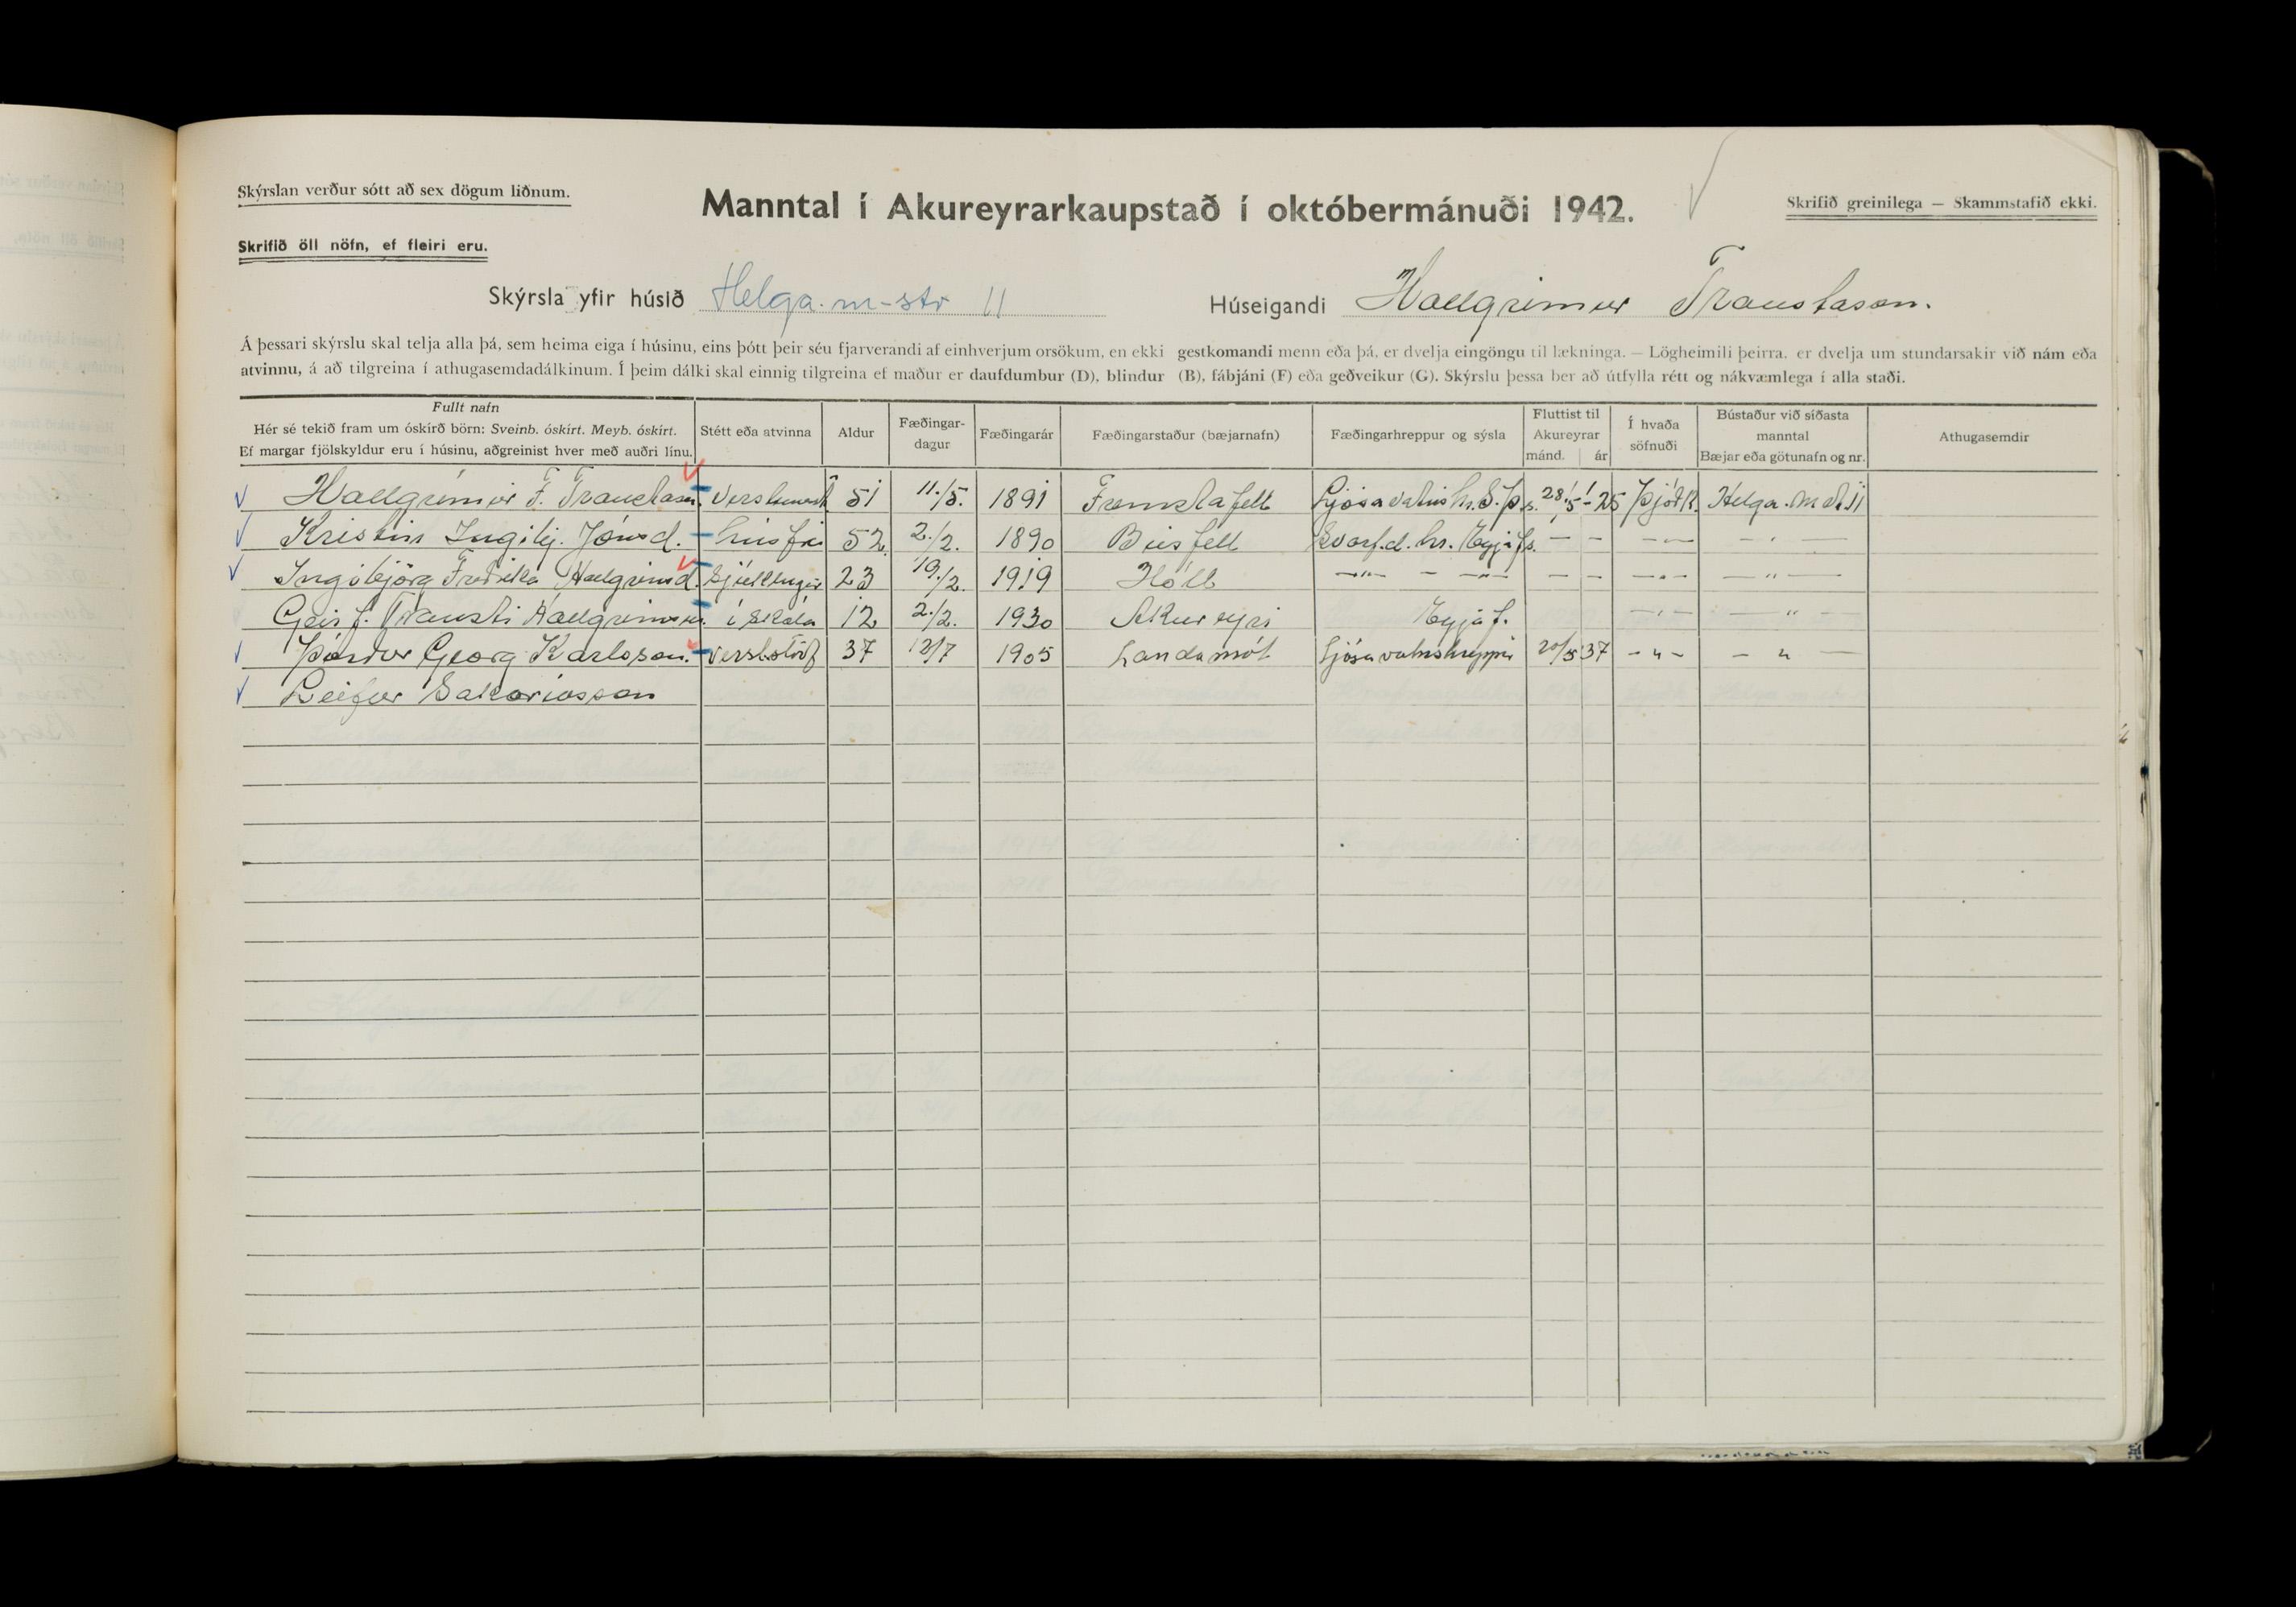 Skýrslan verður sótt að sex dögum liðnum.
Manntal í Akureyrarkaupstað í októbermánuði 1942.
Skrifið greinilega — Skammstafið ekki.
Skrifið öll nöfn, ef fleiri eru.
Skýrsla yfir húsið Helga.m-str 11 Húseigandi Hallgrímur Traustason.
Á þessari skýrslu skal telja alla þá, sem heima eiga í húsinu, eins þótt þeir séu fjarverandi af einhverjum orsökum, en ekki gestkomandi menn eða þá, er dvelja eingöngu til lækninga. — Lögheimili þeirra, er dvelja um stundarsakir við nám eða
atvinnu, á að tilgreina í athugasemdadálkinum. Í þeim dálki skal einnig tilgreina ef maður er daufdumbur (D), blindur (B), fábjáni (F) eða geðveikur (G). Skýrslu þessa ber að útfylla rétt og nákvæmlega í alla staði.
Fullt nafn
Hér sé tekið fram um óskírð börn: Sveinb. óskírt. Meyb. óskírt.
Ef margar fjölskyldur eru í húsinu, aðgreinist hver með auðri línu.
Stétt eða atvinna
Aldur
Fæðingar-
dagur
Fæðingarár
Fæðingarstaður (bæjarnafn)
Fæðingarhreppur og sýsla
Fluttist til
Akureyrar
mánd. ár
Í hvaða
söfnuði
Bústaður við síðasta
manntal
Bæjar eða götunafn og nr.
Athugasemdir
Hallgrímur F. Traustason. 51 11./5. 1891 Fremstafell Ljósavatnshr. S.Þ.s. 28/5-25 Þjóðk. Helga.m.str. 11
Kristín Ingibj. Jónsd. húsfrú 52 2./2. 1890 Búsfell Svarf.d. hr. Eyjafs. — — —„— —„—
Ingibjörg Friðrika Hallgrímsd. 23 19./2. 1919 Hóll —„— — —„— — — —„— —„—
Geir J. Trausti Hallgrímss. í skóla 12 2./2. 1930 Akureyri Eyjaf. —„— —„—
Þórður Georg Karlsson. Verslstörf 37 13/7 1905 Landamót Ljósavatnshreppur 20/5 37 -„- -„-
Leifur Sakaríasson